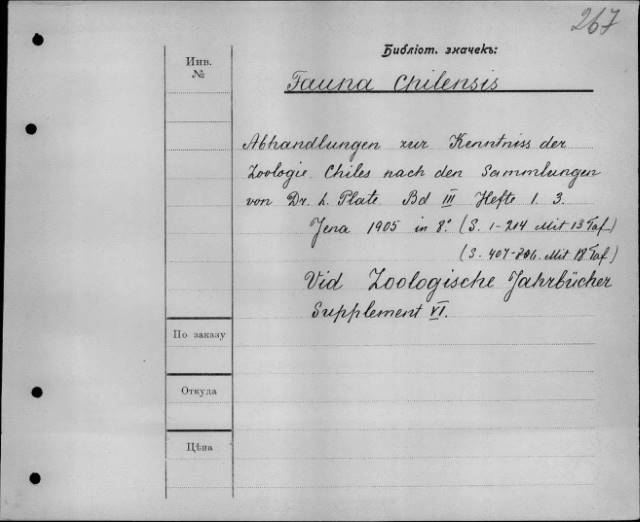 267
Библіот. значекъ:
Инв.
№
Fauna Chilensis
Abhandlungen zur Kenntniss der
Zoologie Chiles nach den Sammlungen
von Dr. L. Plate Bd III Hefte 1. 3.
Jena 1905 in 8.° (S. 1-214 Mit 13 Taf.)
(S. 407-806. Mit 18 Taf.)
Vid Zoologische Jahrbücher
Supplement VI.
По заказу
Откуда
Цѣна